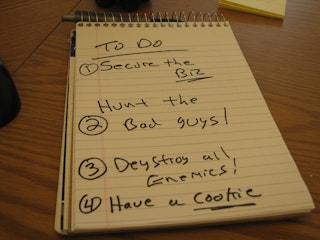 To Do
① Secure the
BIZ
Hunt the
② Bad guys!
③ Deystroy all
Enemies!
④ Have a Cookie